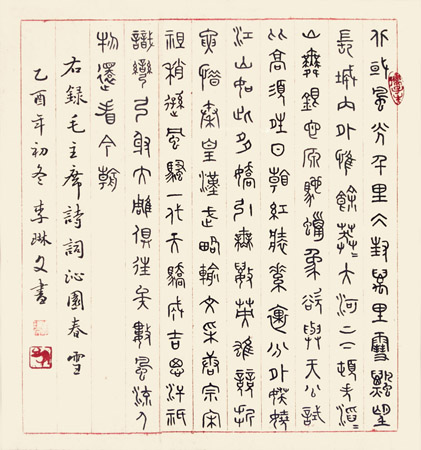 北國風光千里冰封萬里雪飄望
長城內外惟餘莽〻大河上下頓失滔〻
山舞銀蛇原馳蠟象欲與天公試
比高須晴日看紅裝素裹分外妖嬈
江山如此多嬌引無數英雄競折
腰惜秦皇漢武略輸文采唐宗宋
祖稍遜風騷一代天驕成吉思汗祇
識彎弓射大雕俱往矣數風流人
物還看今朝
右錄毛主席詩詞沁園春雪
乙酉年初冬李琳文書